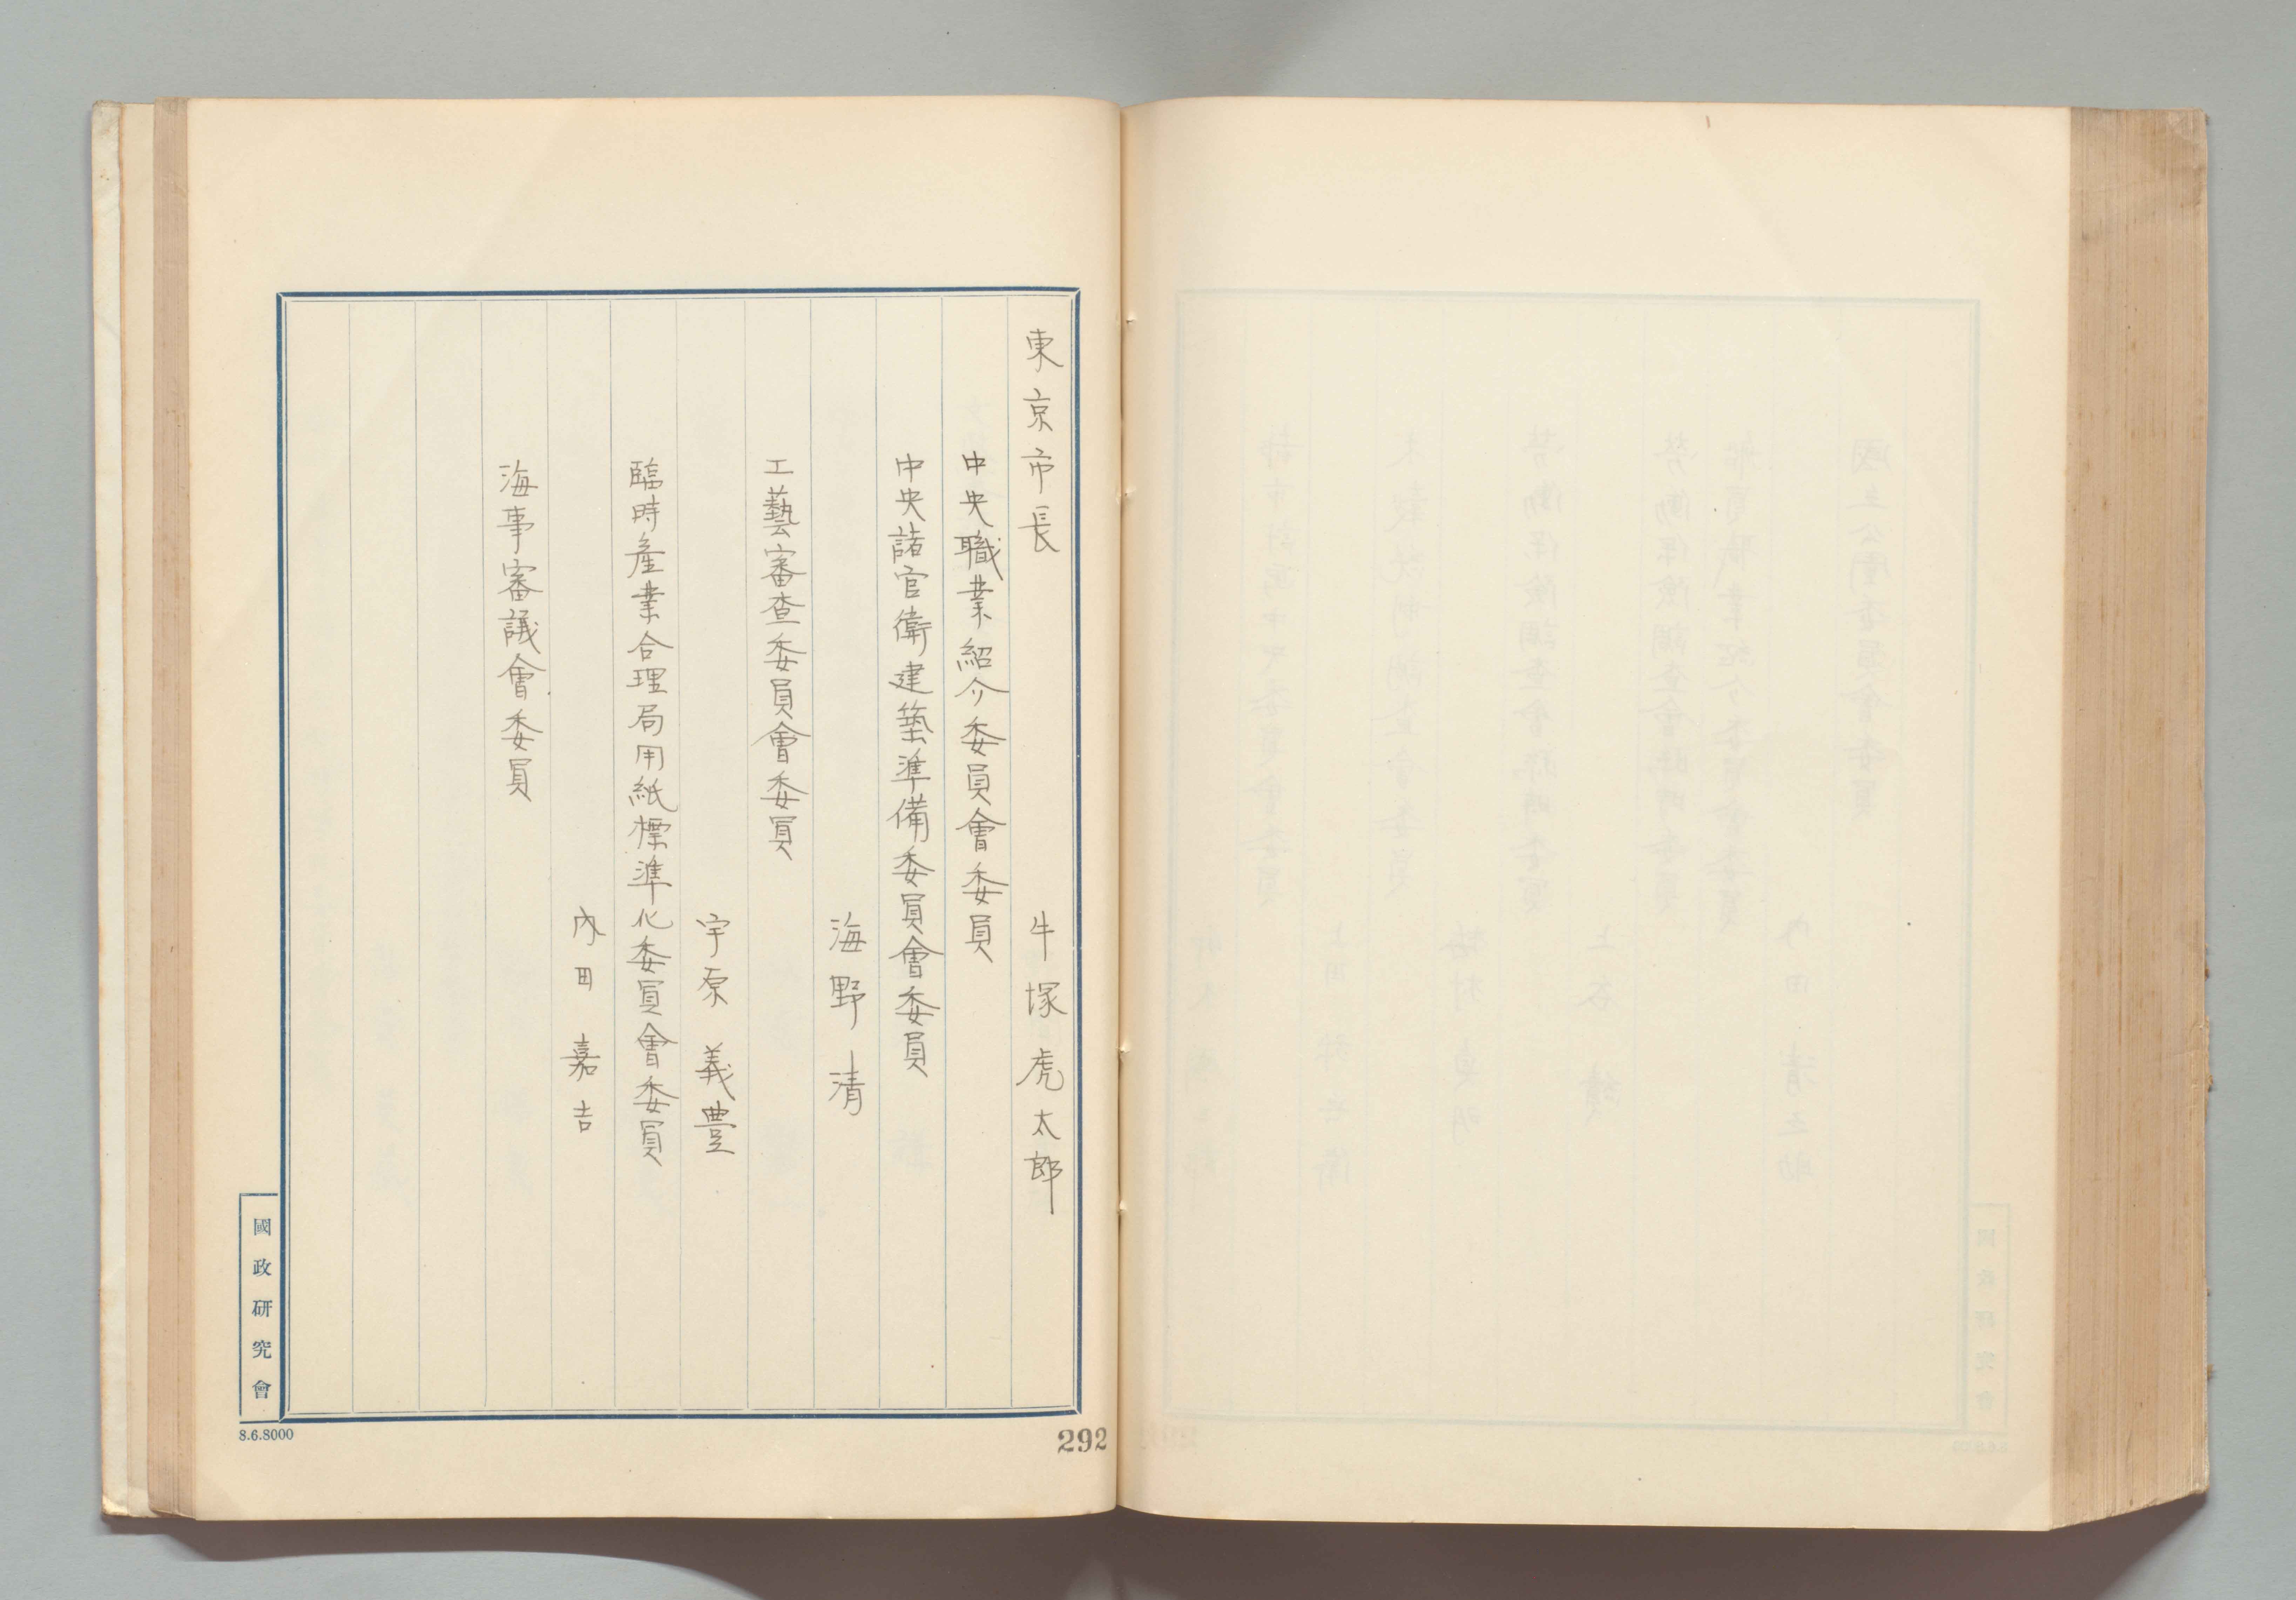 東京市長　牛塚虎太郎
中央職業紹介委員會委員
中央諸官衛建築準備委員會委員
海野清
工藝審查委員會委員
宇原義豊
臨時產業合理局用紙標準化委員會委員
內田嘉吉
海事審議會委員
國政研究會
8.6.8000
292